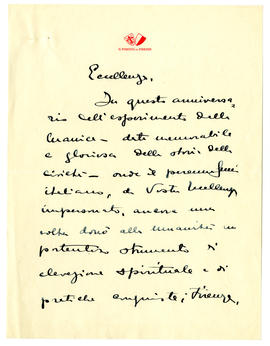 IL PODESTÀ DI FIRENZE
Eccellenza,
In questo anniversa-
rio dell'esperimento della
Manica - data memorabile
e gloriosa della storia della
civiltà - onde il perenne Genio
italiano, da Vostra Eccellenza
impersonato, ancora una
volta donò alla umanità un
portentoso strumento di
elevazione spirituale e di
pratiche conquiste, Firenze,